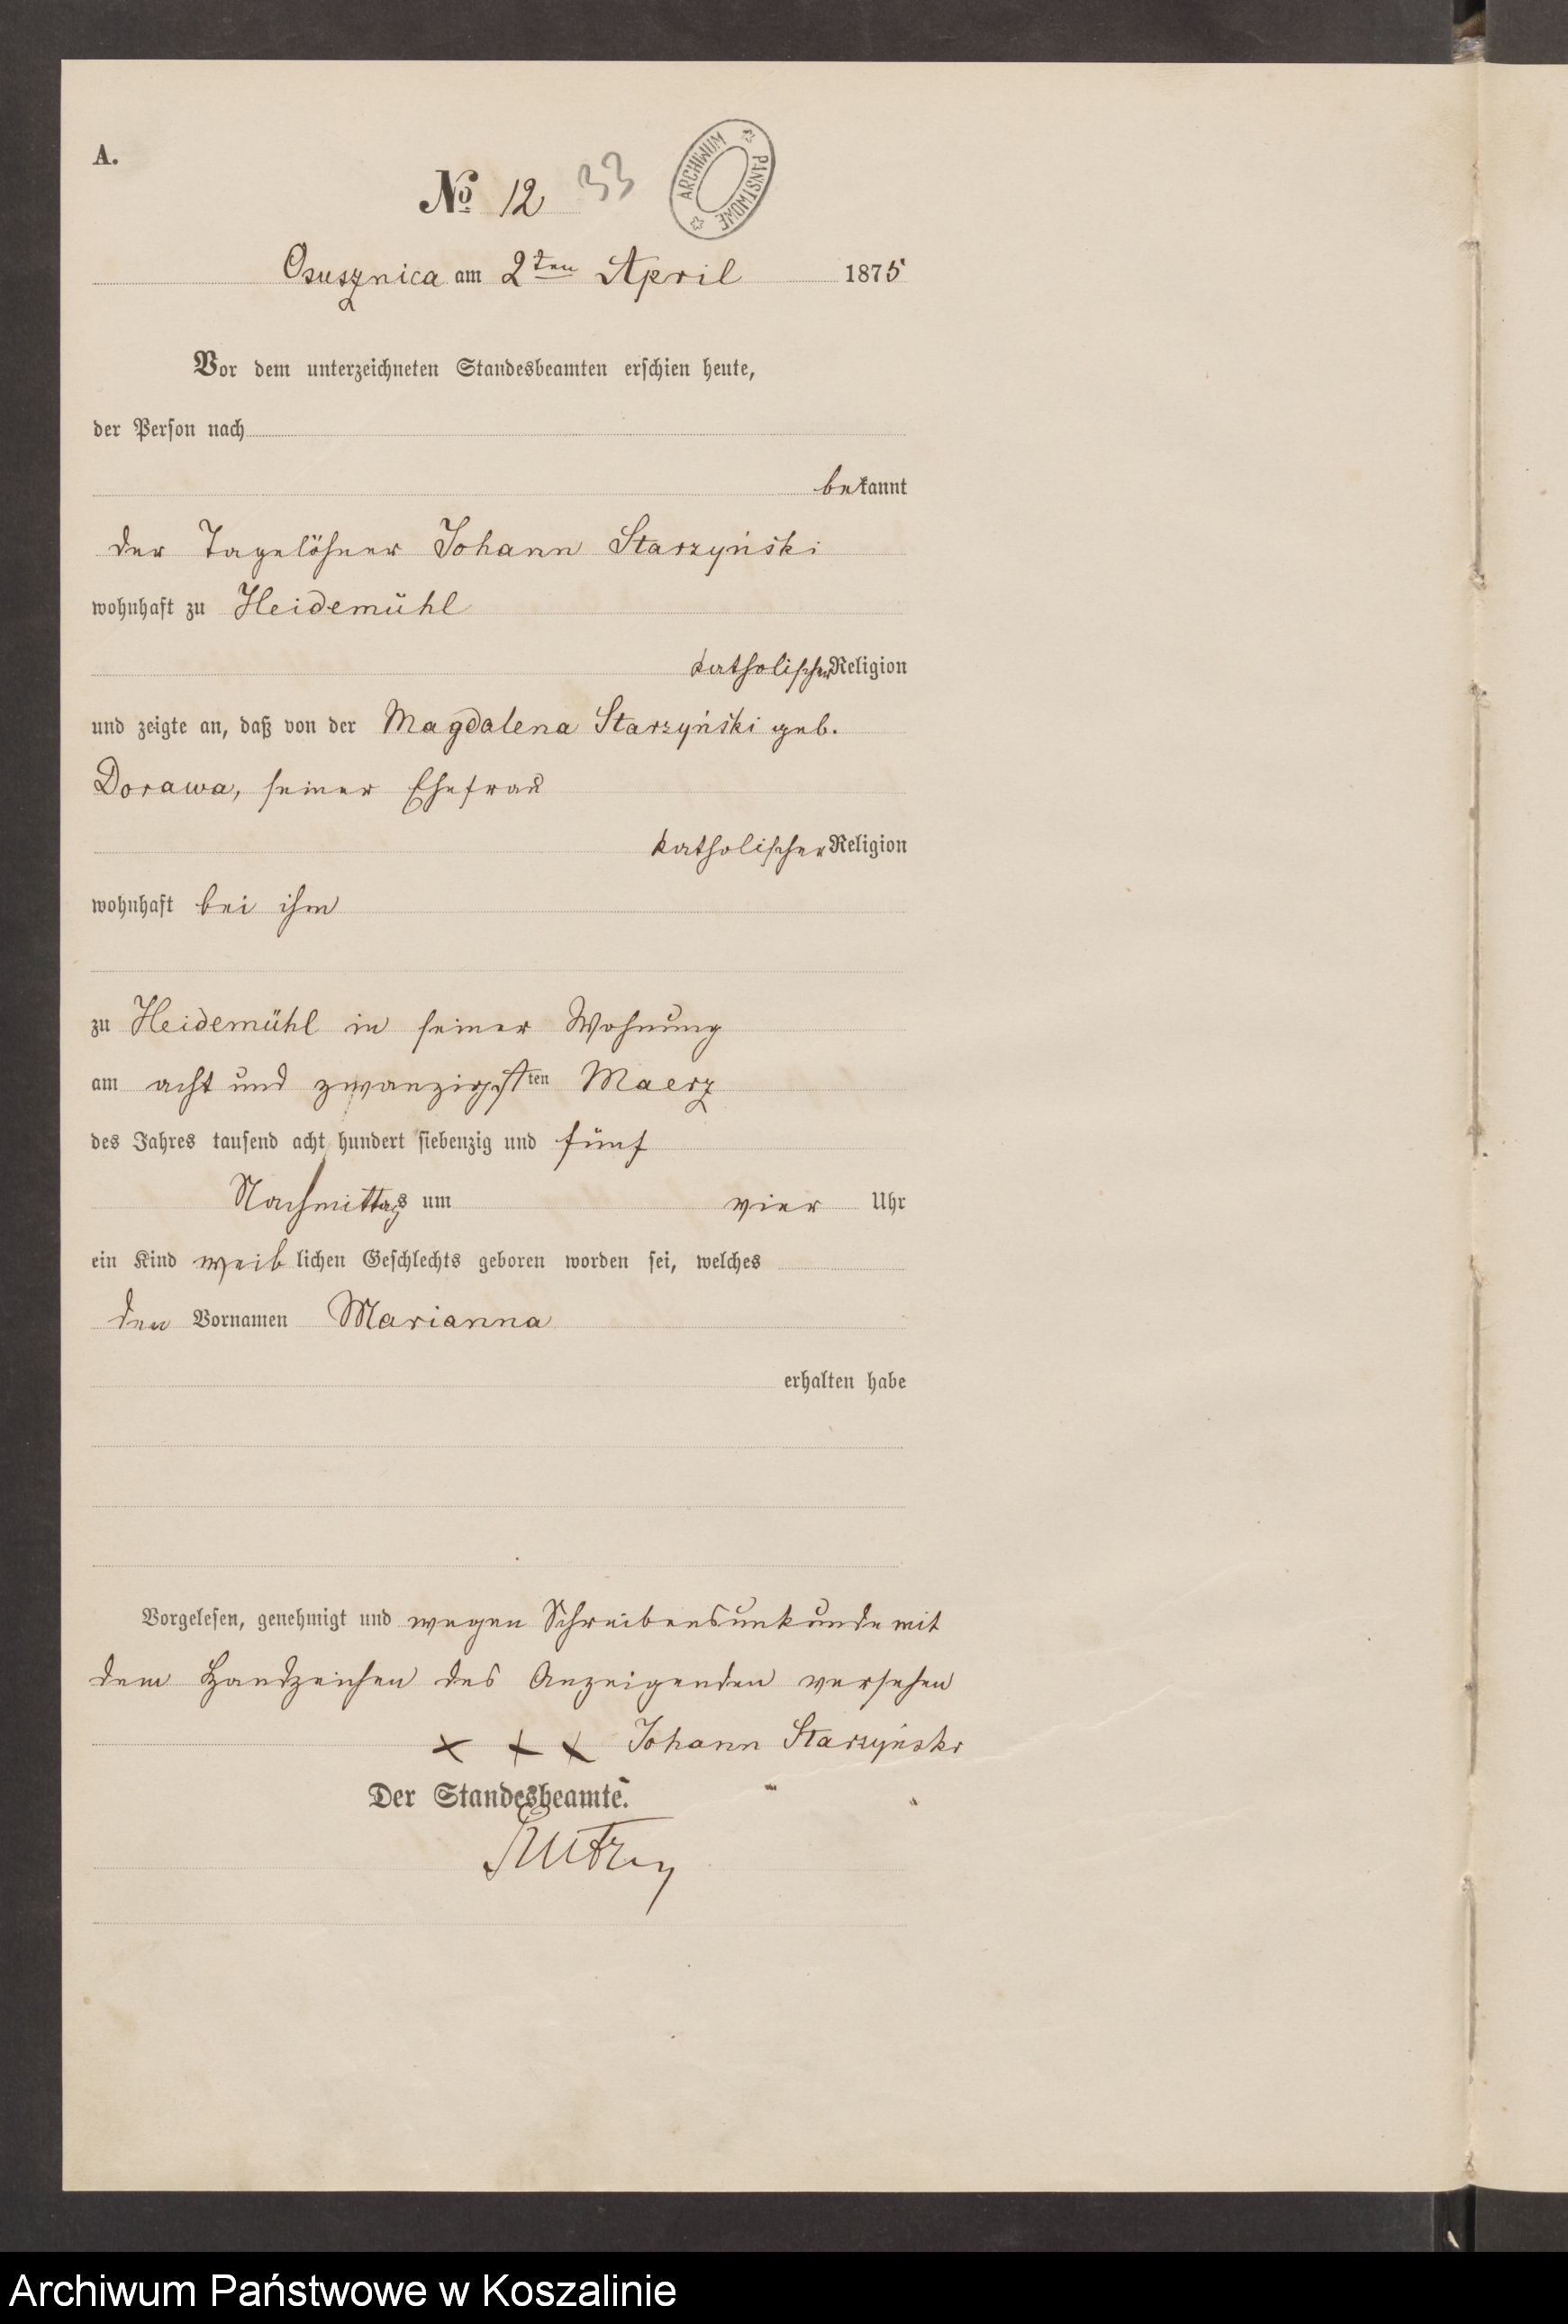 A.
No 12 33
ARCHIWUM PAŃSTWOWE
Osusznica am 2ten April 1875
Vor dem unterzeichneten Standesbeamten erschien heute,
der Person nach
bekannt
der Tagelöhner Johann Starzyński
wohnhaft zu Heidemühl
katholischer Religion
und zeigte an, daß von der Magdalena Starzyński geb.
Dorawa, seiner Ehefrau
katholischer Religion
wohnhaft bei ihm
zu Heidemühl in seiner Wohnung
am acht und zwanzigsten Maerz
des Jahres tausend acht hundert siebenzig und fünf
Nachmittags um vier Uhr
ein Kind weiblichen Geschlechts geboren worden sei, welches
den Vornamen Marianna
erhalten habe
Vorgelesen, genehmigt und wegen Schreibensunkunde mit
dem Handzeichen des Anzeigenden versehen
x x x Johann Starzyński
Der Standesbeamte.
Archiwum Państwowe w Koszalinie